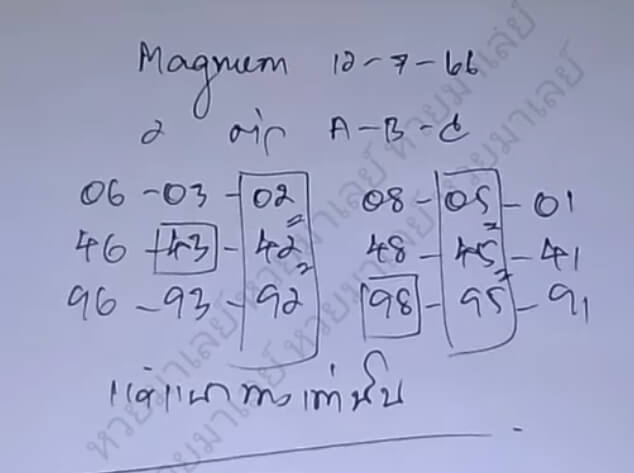 Magnum 12-7-66
2 ตัว A-B-C
06-03-02 08-05-01
46-43-42 48-45-41
96-93-92 98-95-91
แค่แนวทางเท่านั้น
หวยมาเลย์ หวยมาเลย์
หวยมาเลย์ หวยมาเลย์